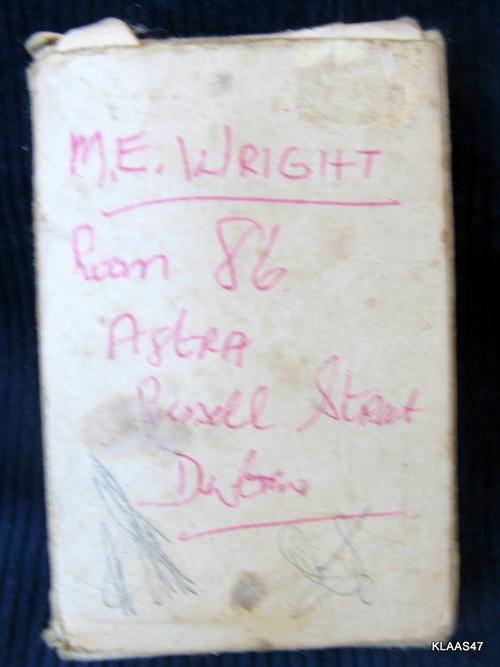 M.E. WRIGHT
Room 86
AstRA
Russell Street
Durban
KLAAS47